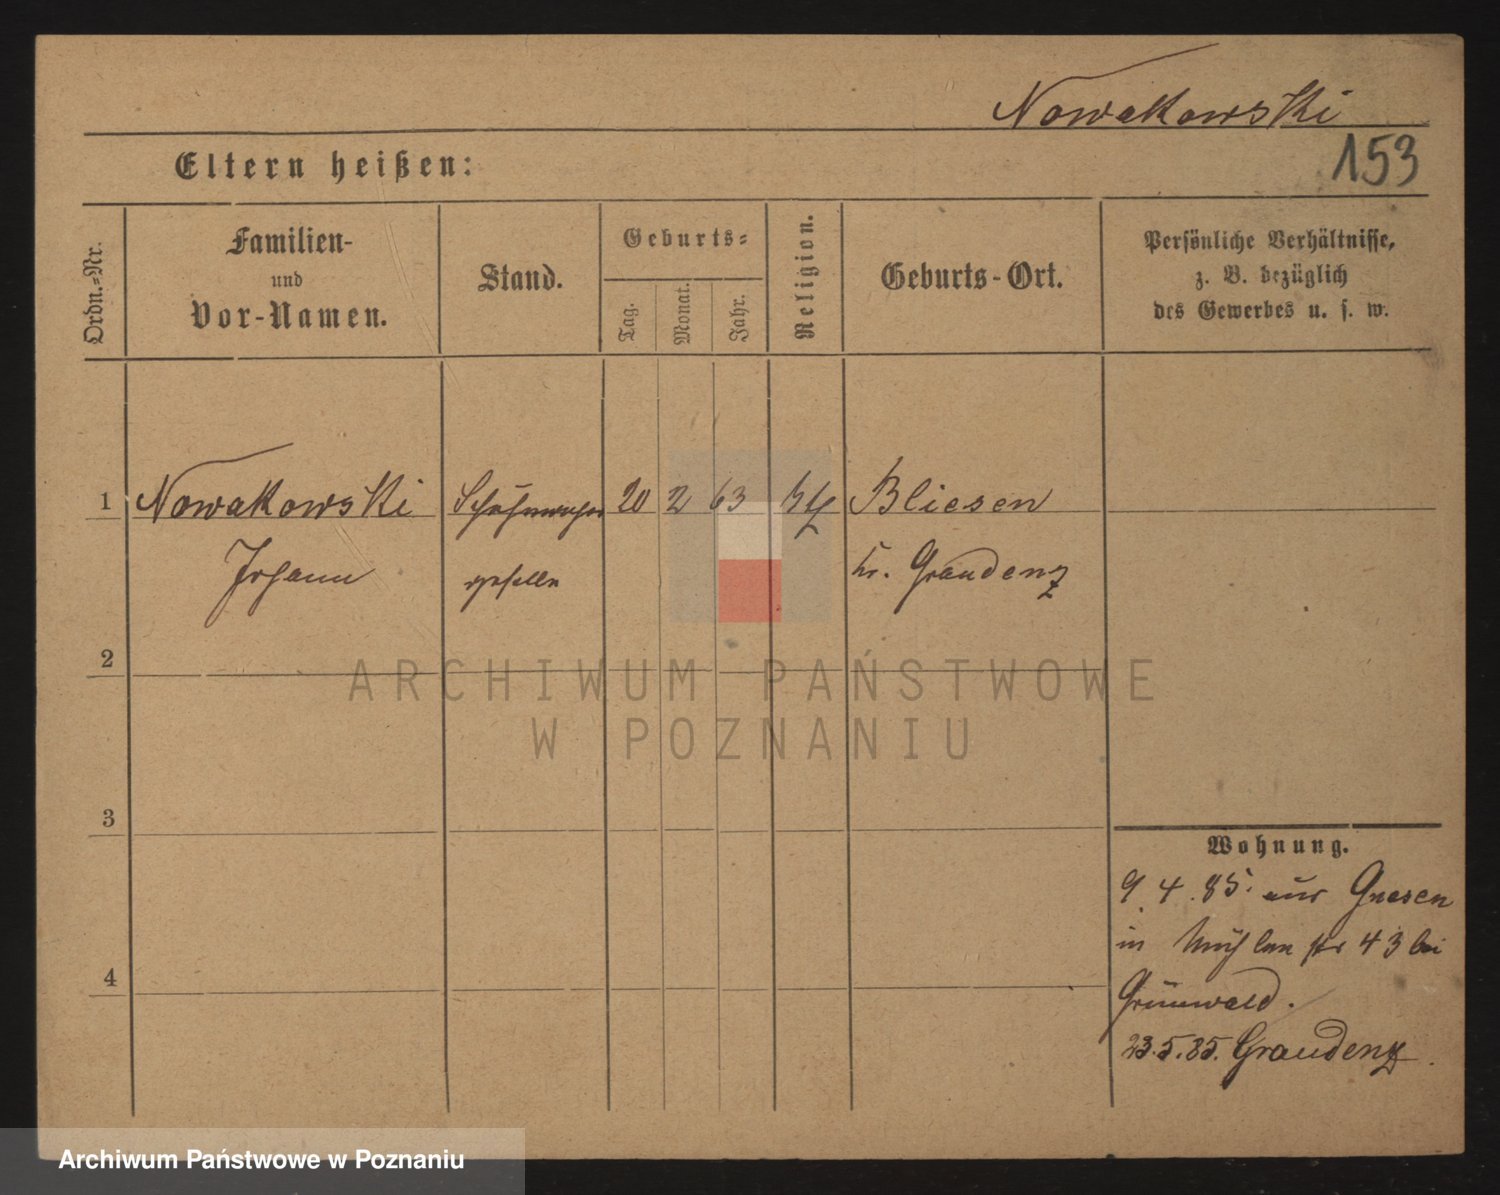 Nowakowski
153
Eltern heißen:
Ordn.-Nr.
Familien-
und
Vor-Namen.
Stand.
Geburts-
Tag.
Monat.
Jahr.
Religion.
Geburts-Ort.
Persönliche Verhältnisse,
z. B. bezüglich
des Gewerbes u. s. w.
1 Nowakowski Schuhmacher 20 2 63 kth Bliesen
Johann geselle Kr. Graudenz
2
ARCHIWUM PAŃSTWOWE
W POZNANIU
3
Wohnung.
9.4.85. aus Gnesen
in Mühlenstr 43 bei
4
Grünwald.
23.5.85. Graudenz.
Archiwum Państwowe w Poznaniu